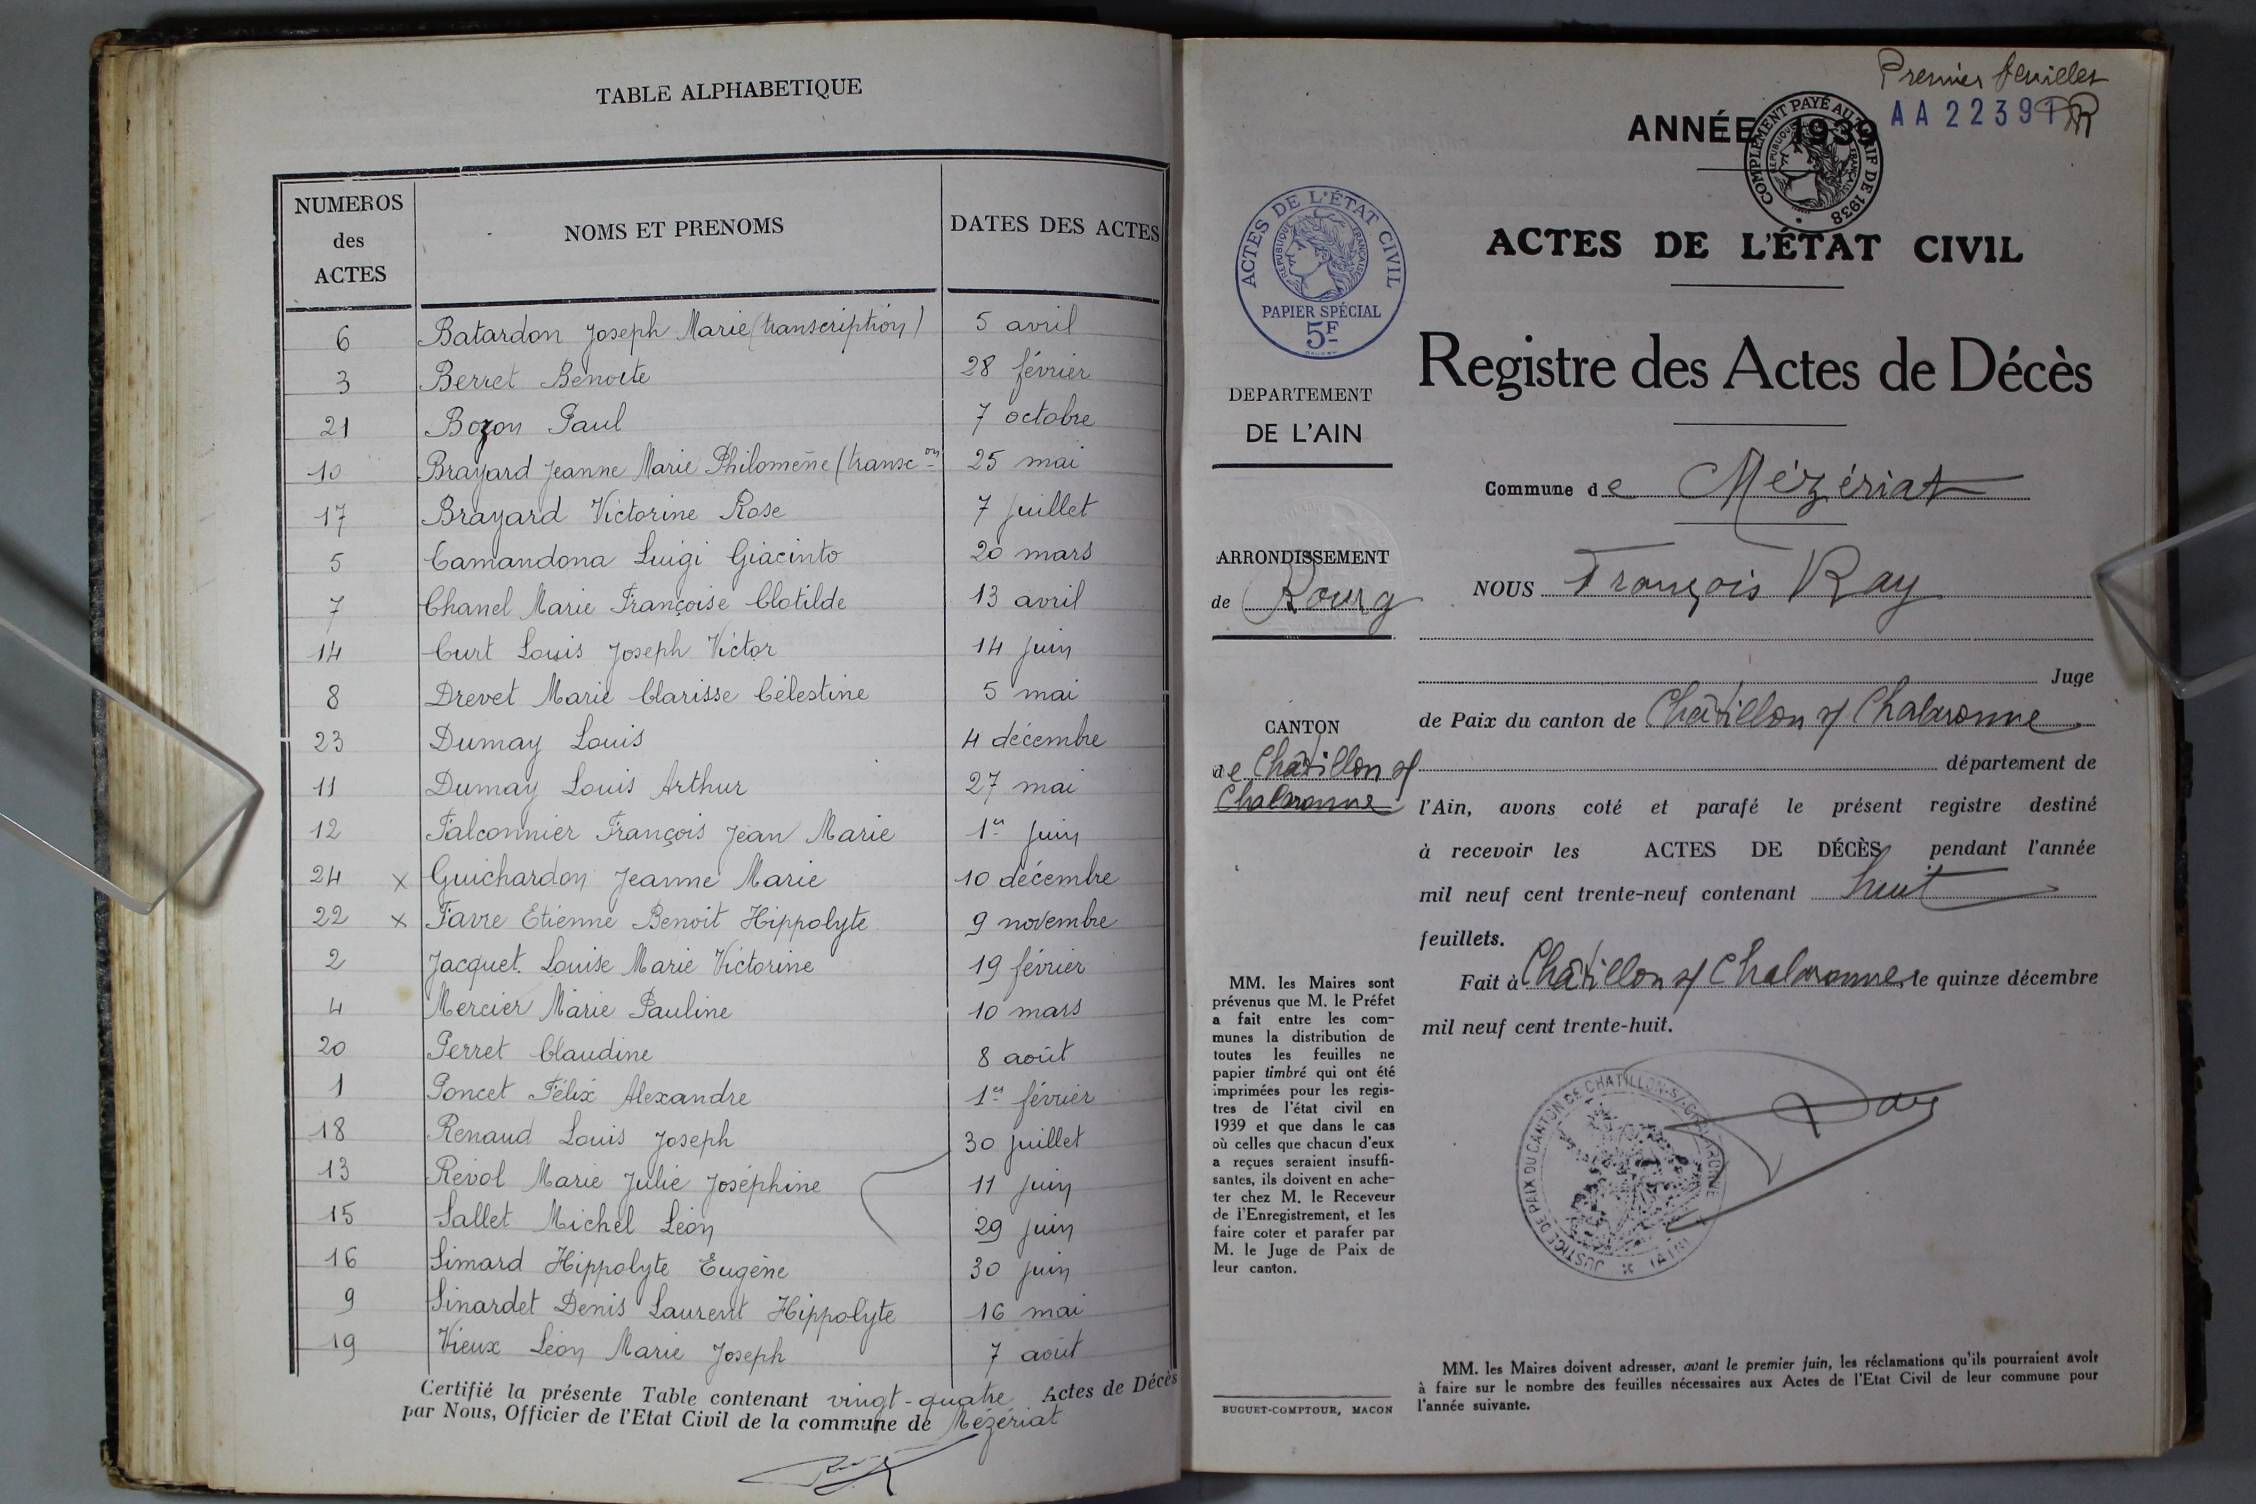 TABLE ALPHABETIQUE
NUMEROS des ACTES NOMS ET PRENOMS DATES DES ACTES
6 Batardon Joseph Marie (transcription) 5 avril
3 Berret Benoite 28 février
21 Bozon Paul 7 octobre
10 Brayard Jeanne Marie Philomène (transcon 25 mai
17 Brayard Victorine Rose 7 juillet
5 Camandona Luigi Giacinto 20 mars
7 Chanel Marie Françoise Clotilde 13 avril
14 Curt Louis Joseph Victor 14 juin
8 Drevet Marie Clarisse Célestine 5 mai
23 Dumay Louis 4 décembre
11 Dumay Louis Arthur 27 mai
12 Falconnier François Jean Marie 1er juin
24 x Guichardon Jeanne Marie 10 décembre
22 x Favre Etienne Benoit Hippolyte 9 novembre
2 Jacquet Louise Marie Victorine 19 février
4 Mercier Marie Pauline 10 mars
20 Perret Claudine 8 août
1 Poncet Félix Alexandre 1er février
18 Renaud Louis Joseph 30 juillet
13 Revol Marie Julie Joséphine 11 juin
15 Sallet Michel Léon 29 juin
16 Simard Hippolyte Eugène 30 juin
9 Sinardet Denis Laurent Hippolyte 16 mai
19 Vieux Léon Marie Joseph 7 août
Certifié la présente Table contenant vingt-quatre Actes de Décès
par Nous, Officier de l'Etat Civil de la commune de Mézériat
Premier feuillet
AA 22391
ANNÉE 1939
COMPLÉMENT PAYÉ AU TARIF DE 1938
RÉPUBLIQUE FRANÇAISE
ACTES DE L'ÉTAT CIVIL
RÉPUBLIQUE FRANÇAISE
PAPIER SPÉCIAL
5F
ACTES DE L'ÉTAT CIVIL
Registre des Actes de Décès
DEPARTEMENT
DE L'AIN
Commune de Mézériat
ARRONDISSEMENT
de Bourg
NOUS François Ray
Juge
de Paix du canton de Châtillon s/ Chalaronne
CANTON
de Châtillon s/
Chalaronne
département de
l'Ain, avons coté et parafé le présent registre destiné
à recevoir les ACTES DE DÉCÈS pendant l'année
mil neuf cent trente-neuf contenant huit
feuillets.
Fait à Châtillon s/ Chalaronne, le quinze décembre
mil neuf cent trente-huit.
MM. les Maires sont
prévenus que M. le Préfet
a fait entre les com-
munes la distribution de
toutes les feuilles ne
papier timbré qui ont été
imprimées pour les regis-
tres de l'état civil en
1939 et que dans le cas
où celles que chacun d'eux
a reçues seraient insuffi-
santes, ils doivent en ache-
ter chez M. le Receveur
de l'Enregistrement, et les
faire coter et parafer par
M. le Juge de Paix de
leur canton.
JUSTICE DE PAIX DU CANTON DE CHATILLON-S/-CHALARONNE
(AIN)
Ray
MM. les Maires doivent adresser, avant le premier juin, les réclamations qu'ils pourraient avoir
à faire sur le nombre des feuilles nécessaires aux Actes de l'Etat Civil de leur commune pour
l'année suivante.
BUGUET-COMPTOUR, MACON